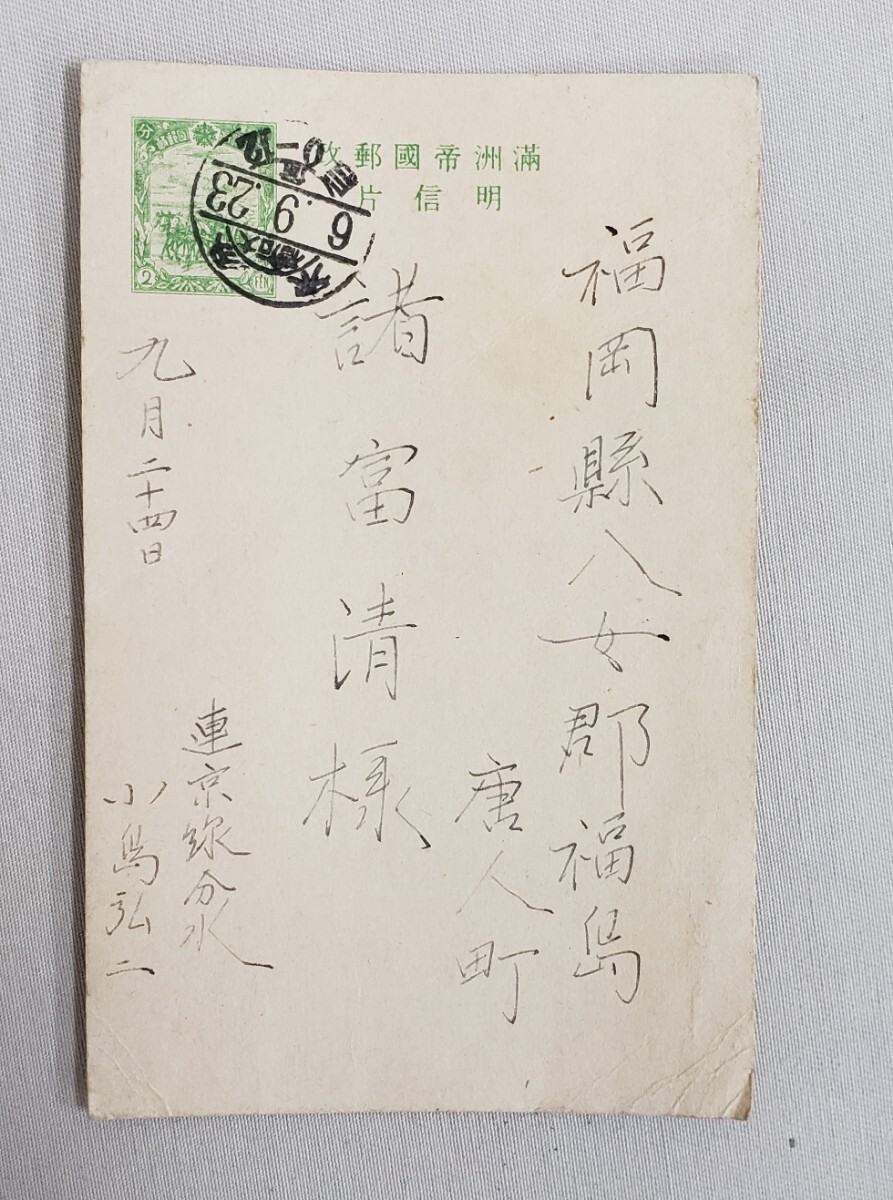 滿洲帝國郵政
明信片
分
2
FEN
6.9.23
福岡縣八女郡福島
唐人町
諸富清様
九月二十四日
連京線分水
小島弘二